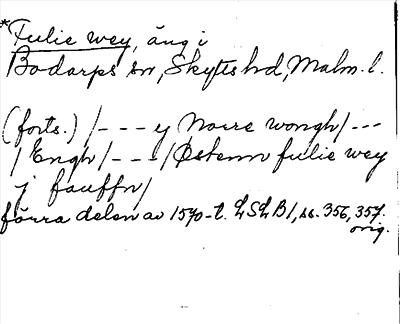 *Fulie wey, äng i
Bodarps sn, Skytts hd, Malm. l.
(forts.) /---y Norre wongh/---
/Engh/---/Østenn fulie wey
j fauffn/
förra delen av 1570-t. LSLB1, ss. 356, 357.
orig.